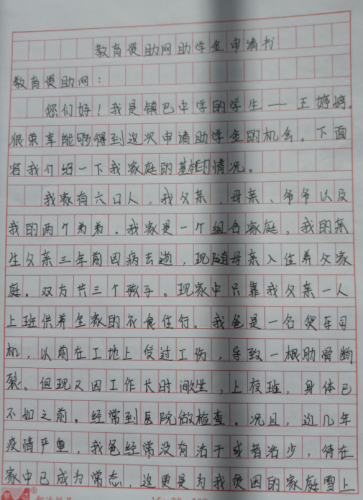 教育援助网助学金申请书
教育援助网:
你们好!我是镇巴中学的学生——王婷婷,
很荣幸能够得到这次申请助学金的机会。下面
将我介绍一下我家庭的基本情况。
我家有六口人,我父亲,母亲、爷爷以及
我的两个弟弟。我家是一个组合家庭。我的亲
生父亲三年前因病去逝,现随母亲入住养父家
庭。双方共三个孩子。现家中只靠我父亲一人
上班供养全家的衣食住行。我爸是一名货车司
机,以前在工地上受过工伤,导致一根肋骨断
裂。但现又因工作长时间坐,上夜班,身体已
不如之前。经常到医院做检查。况且,这几年
疫情严重,我爸经常没有活干或者活少,待在
家中已成为常态,这更是为我贫困的家庭雪上